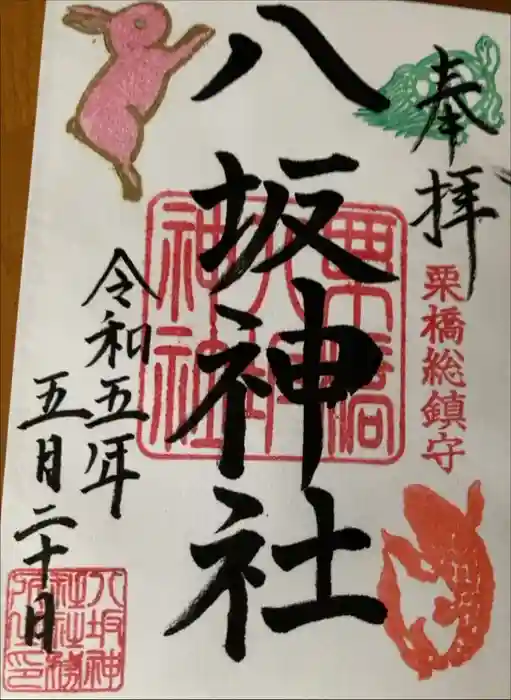 奉拝
栗橋総鎮守
八坂神社
栗橋
八坂
神社
令和五年
五月二十日
八坂神
社社務
所之印